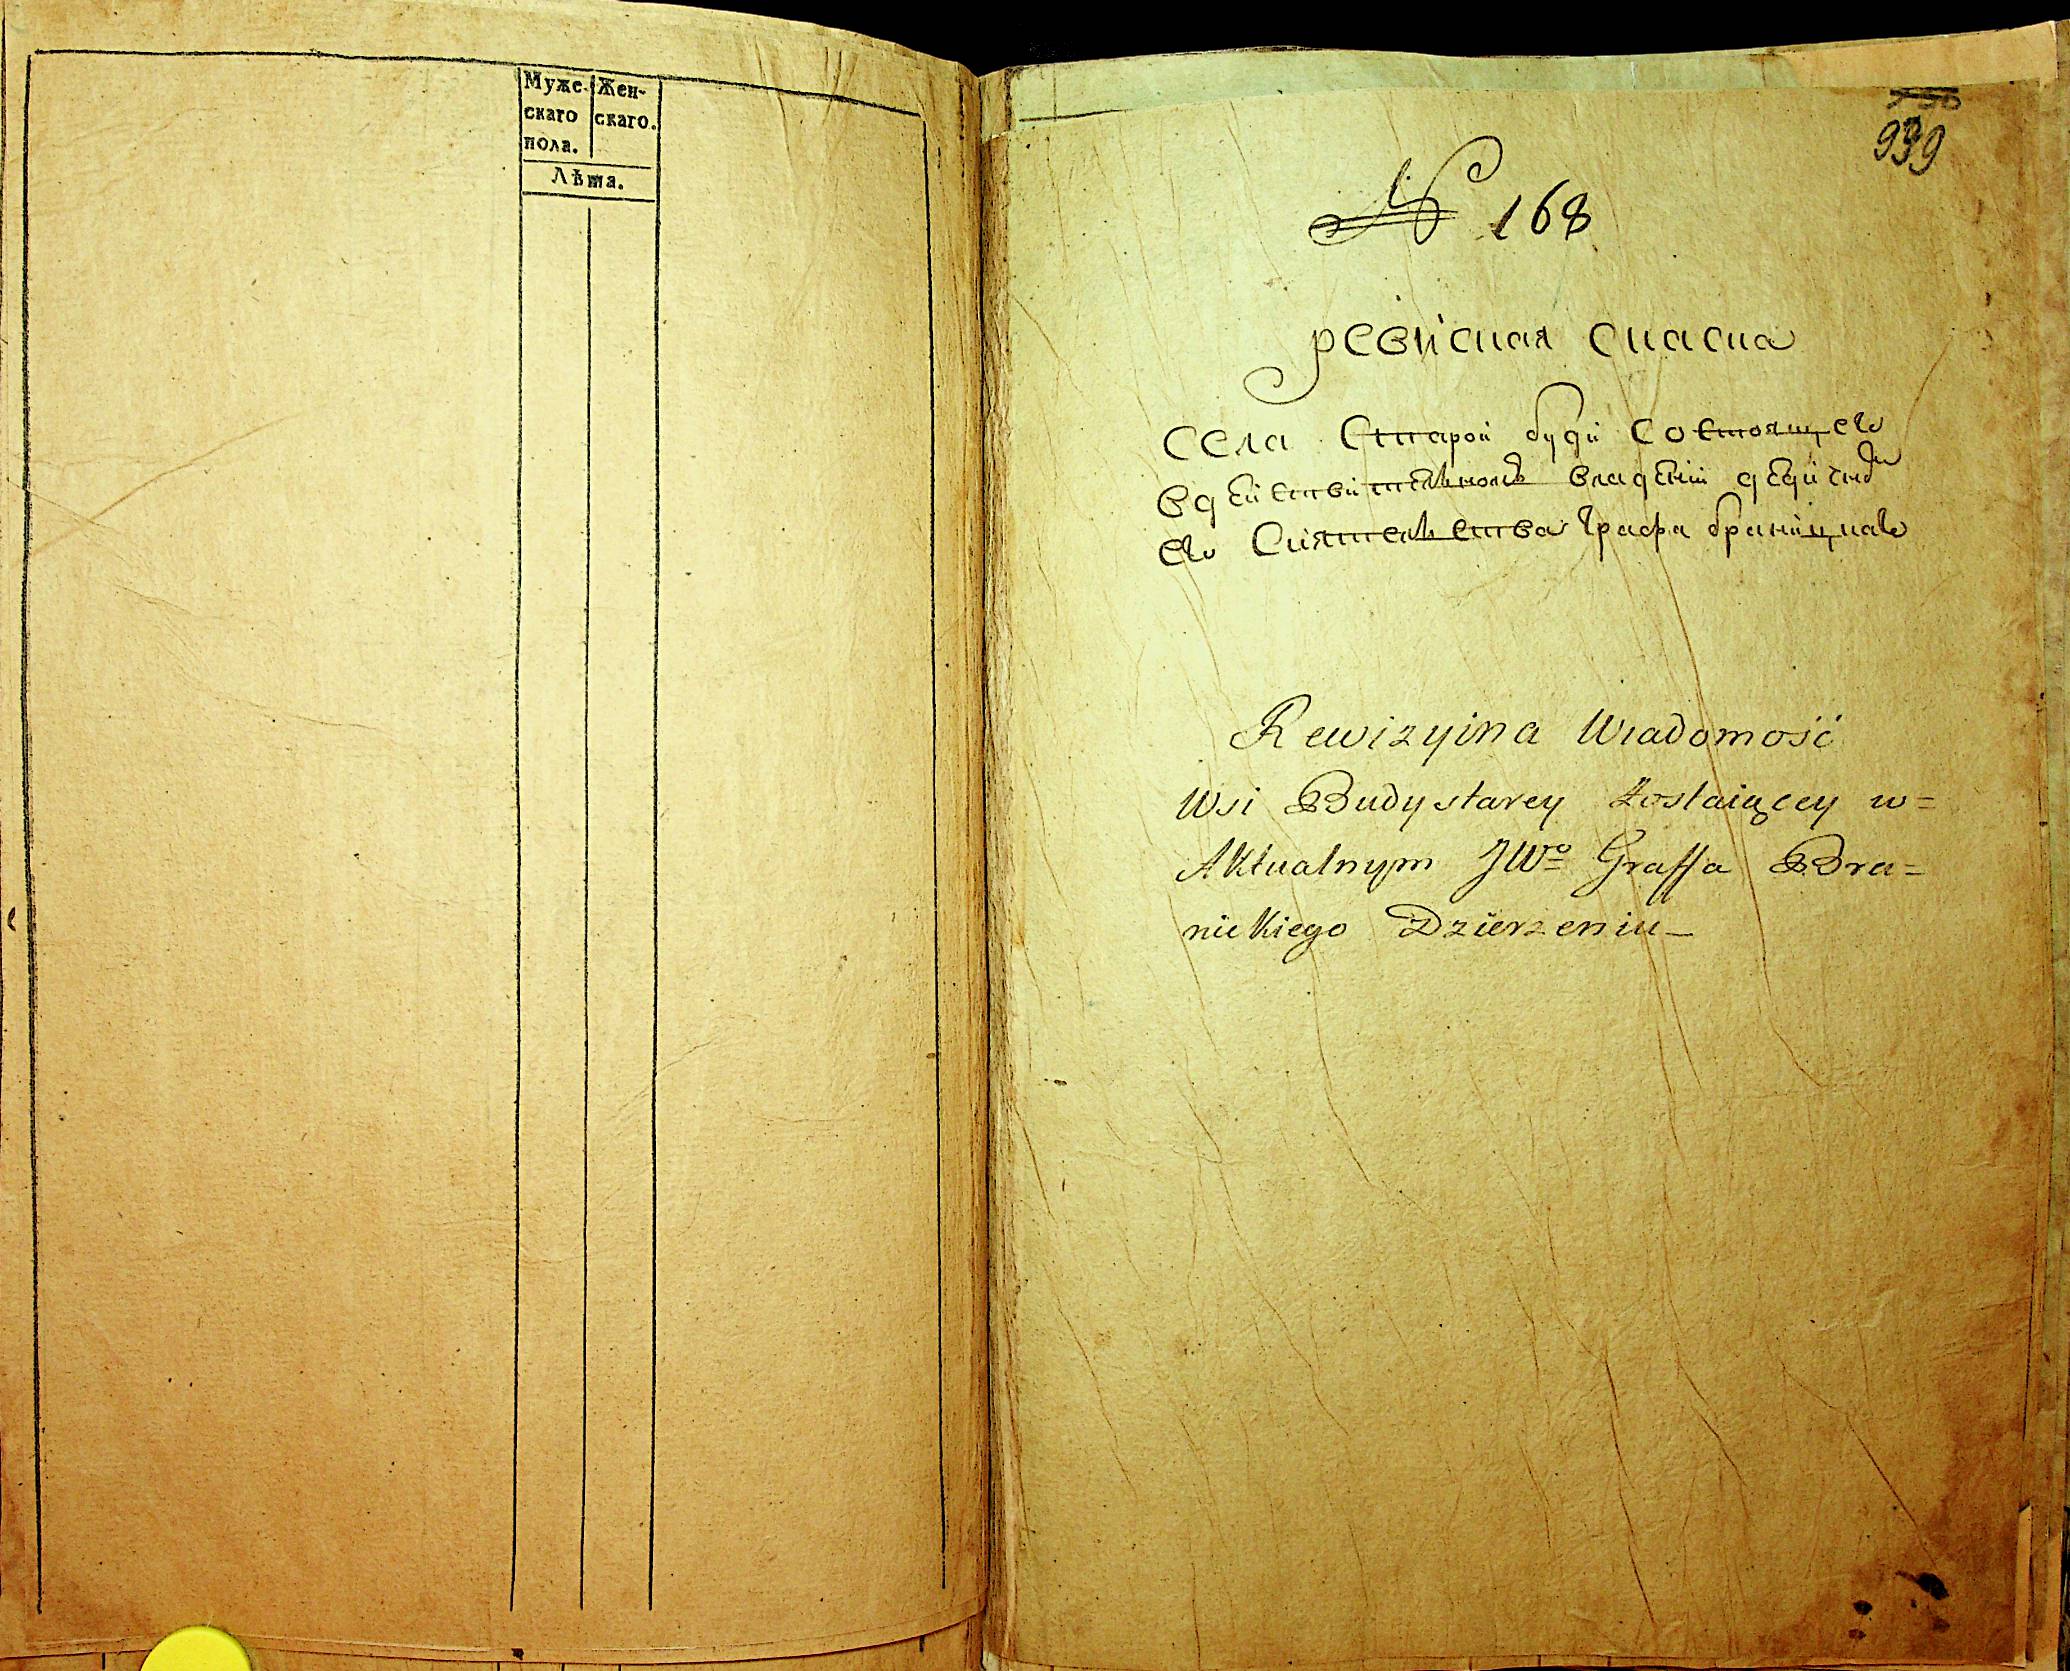 Муже- Жен-
скаго скаго.
пола.
Лѣта.
939
№ 168
ревизская сказка
села Старой буди Состоящего
вдействительномъ владении
его Сиятельства графа браницкаго
Rewizyina Wiadomość
Wsi Budy starey Zostaiącey w=
Aktualnym JWo Graffa Bra=
nickiego Dzierzeniu_